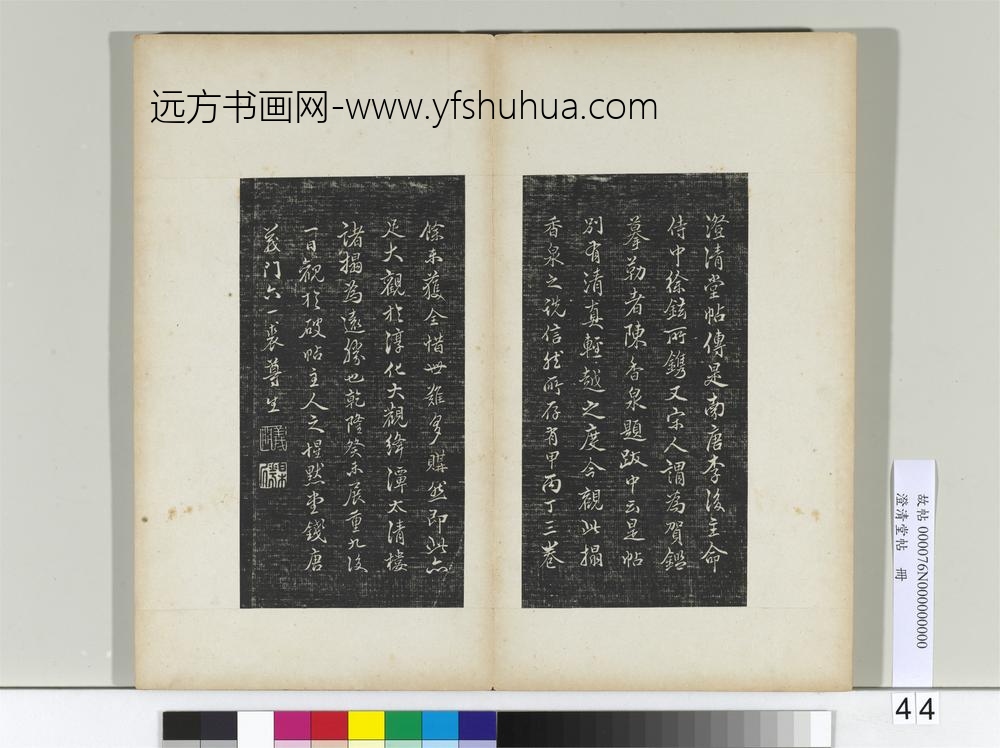 远方书画网-www.yfshuhua.com
澄清堂帖傳是南唐李後主命
侍中徐鉉所鐫又宋人謂為賀鑑
摹勒者陳香泉題跋中云是帖
別有清真輕越之度今觀此搨
香泉之說信然所存有甲丙丁三卷
餘未獲全惜世難多購然即此亦
足大觀於淳化大觀絳潭太清樓
諸搨為遠勝也乾隆癸未展重九後
一日觀於破帖主人之惺默堂錢唐
義門六一裘尊生
故帖 000076N000000000
澄清堂帖 冊
44